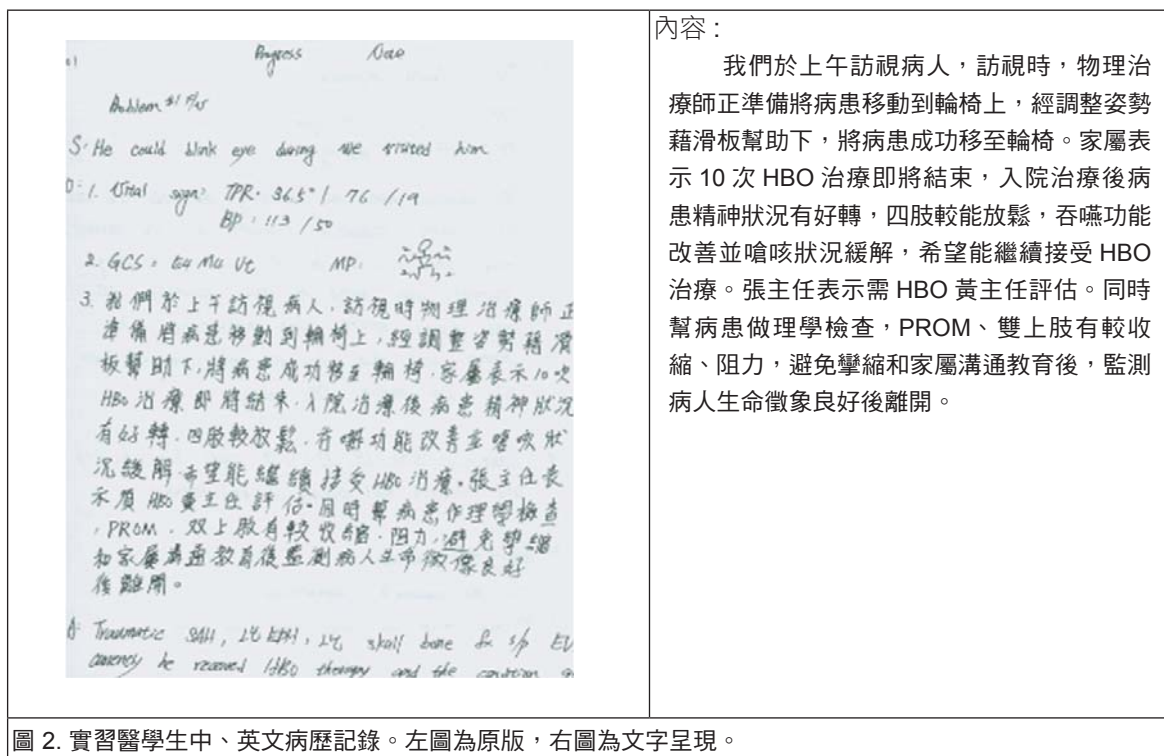 Progress Note
Problem #1
S: He could blink eye during we visited him
O: 1. Vital sign: TPR: 36.5°/ 76 /19
BP: 113 /50
2. GCS: E4 M4 Vt MP:
3. 我們於上午訪視病人,訪視時物理治療師正
準備將病患移動到輪椅上,經調整姿勢藉滑
板幫助下,將病患成功移至輪椅.家屬表示10次
HBO治療即將結束.入院治療後病患精神狀況
有好轉.四肢較放鬆.吞嚥功能改善並嗆咳狀
況緩解.希望能繼續接受HBO治療.張主任表
示須HBO黃主任評估.同時幫病患作理學檢查
,PROM.双上肢有較收縮.阻力,避免攣縮
和家屬溝通教育後監測病人生命徵像良好
後離開。
A: Traumatic SAH, skull bone fx s/p EV
he received HBO therapy and the
內容:
我們於上午訪視病人,訪視時,物理治
療師正準備將病患移動到輪椅上,經調整姿勢
藉滑板幫助下,將病患成功移至輪椅。家屬表
示 10 次 HBO 治療即將結束,入院治療後病
患精神狀況有好轉,四肢較能放鬆,吞嚥功能
改善並嗆咳狀況緩解,希望能繼續接受 HBO
治療。張主任表示需 HBO 黃主任評估。同時
幫病患做理學檢查,PROM、雙上肢有較收
縮、阻力,避免攣縮和家屬溝通教育後,監測
病人生命徵象良好後離開。
圖 2. 實習醫學生中、英文病歷記錄。左圖為原版,右圖為文字呈現。